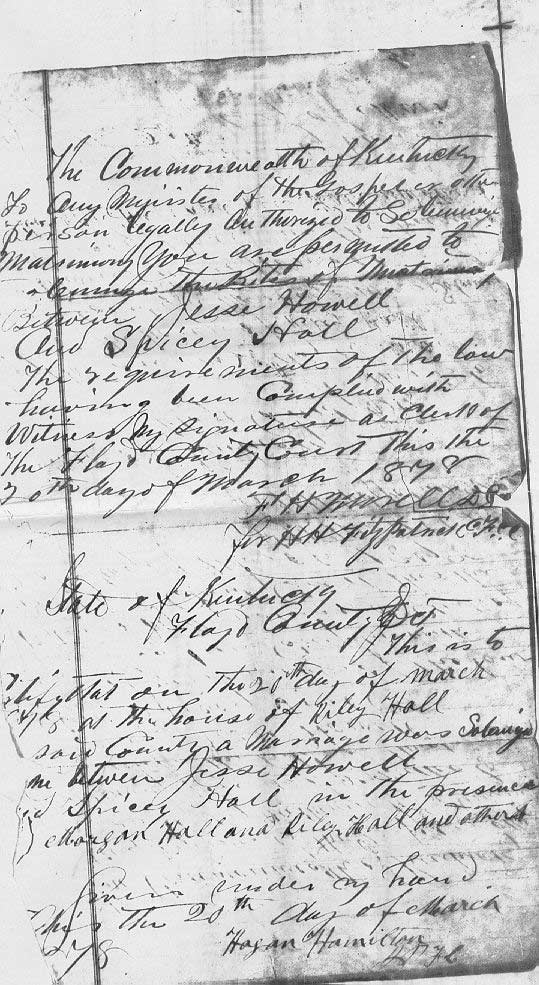 The Commonwealth of Kentucky
To Any Minister of the Gospel or other
person legally Authorized to Solemnize
Matrimony You are permitted to
the Rites of Matrimony
Between Jesse Howell
And Spicey Hall
The requirements of the law
having been Complied with
Witness My Signature as Clerk of
The Floyd County Court this the
20th day of March 1878
for H H Fitzpatrick
State of Kentucky
Floyd County
This is to
that on the 20th day of March
at the house of Riley Hall
said County a Marriage was
between Jesse Howell
Spicey Hall in the presence
Morgan Hall and Riley Hall and others
Given under my hand
this the 20th day of March
Hogan Hamilton